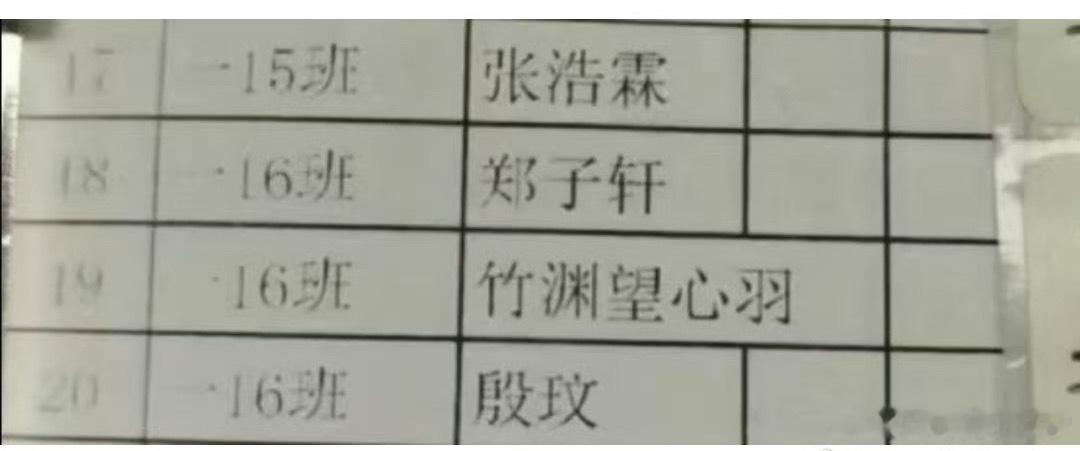 17 一15班 张浩霖
18 一16班 郑子轩
19 一16班 竹渊望心羽
20 一16班 殷玟